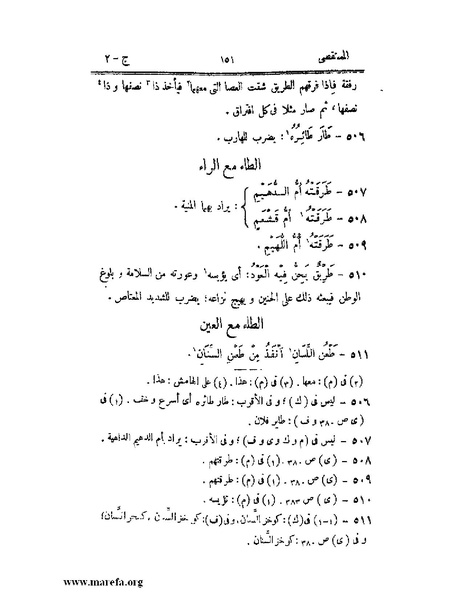 المستقصى ١٥١ ج – ٢
رفقة فإذا فرقهم الطريق شقت العصا التى معهما٢ فيأخذ ذا٣ نصفها و ذا٤
نصفها، ثم صار مثلا فى كل افتراق .
٥٠٦ – طَارَ طَائِرُهُ١: يضرب للهارب .
الطاء مع الراء
٥٠٧ – طَرَقَتْهُ أُمُّ الدُّهَيْمِ
٥٠٨ – طَرَقَتْهُ١ أُمُّ قَشْعَمٍ : يراد بها المنية .
٥٠٩ – طَرَقَتْهُ١ أُمُّ اللُّهَيْمِ .
٥١٠ – طَرِيقٌ يَحِنُّ فِيهِ الْعَوْدُ: أى يؤيسه١ وعورته من السلامة و بلوغ
الوطن فيبعثه ذلك على الحنين و يهيج نزاعه؛ يضرب للشديد المعتاص .
الطاء مع العين
٥١١ – طَعْنُ اللِّسَانِ١ أَنْفَذُ مِنْ طَعْنِ السِّنَانِ١.
(٢) فى (م): معها . (٣) فى (م): هذا . (٤) على الهامش: هذا .
٥٠٦ – ليس فى (ك)؛ و فى الأقرب: طار طائره أى أسرع و خف . (١) فى
(ى ص . ٣٨ و ف): طاير فلان .
٥٠٧ – ليس فى (م و ك و ى و ف)؛ و فى الأقرب: يراد بأم الدهيم الداهية .
٥٠٨ – (ى) ص . ٣٨ . (١) فى (م): طرقتهم .
٥٠٩ – (ى) ص . ٣٨ . (١) فى (م): طرقتهم .
٥١٠ – (ى) ص ٣٨٣ . (١) فى (م): تؤيسه .
٥١١ – (١-١) فى (ك): كوخز السنان، و فى (ف): كوخز السنان
و فى (ى) ص . ٣٨ : كوخز السنان .
www.marefa.org